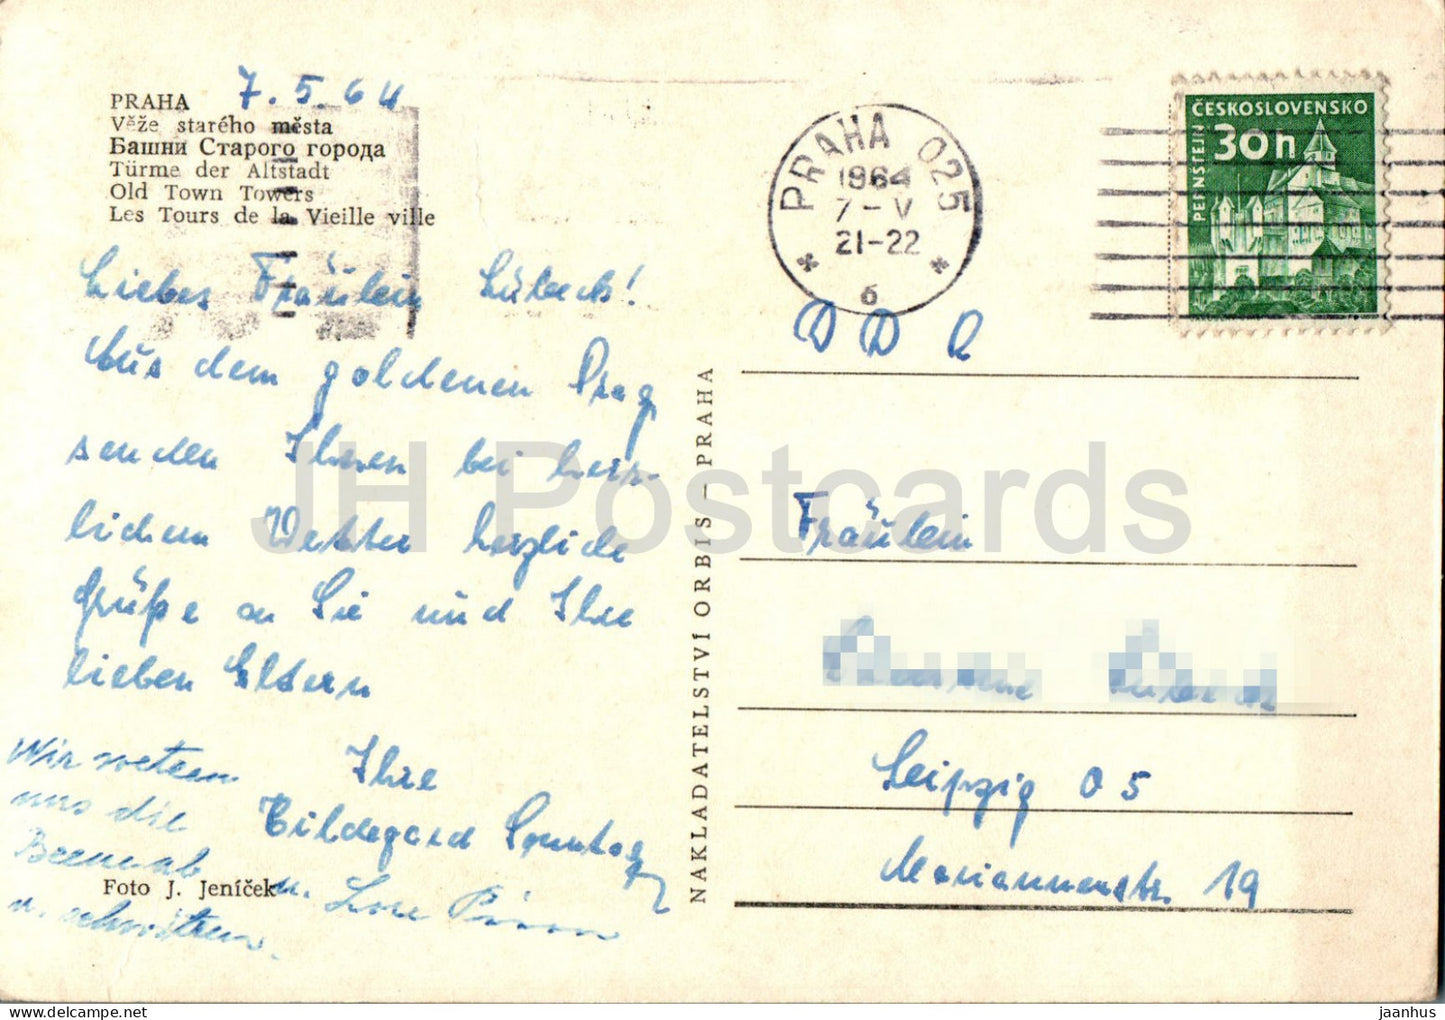 PRAHA 7.5.64
Věže starého města
Башни Старого города
Türme der Altstadt
Old Town Towers
Les Tours de la Vieille ville
PRAHA 025
1964
7-V
21-22
6
ČESKOSLOVENSKO
30h
PERNŠTEJN
Liebes Fräulein Lübeck!
Aus dem goldenen Prag
senden Ihnen bei herr-
lichem Wetter herzliche
Grüße an Sie und Ihre
lieben Eltern
Ihre
Hildegard Sonntag
u. Lore
Wir
uns die
Beene ab
u. schwitzen.
Foto J. Jeníček
NAKLADATELSTVÍ ORBIS – PRAHA
DDR
Fräulein
Leipzig O5
Mariannenstr. 19
JH Postcards
delcampe.net
jaanhus